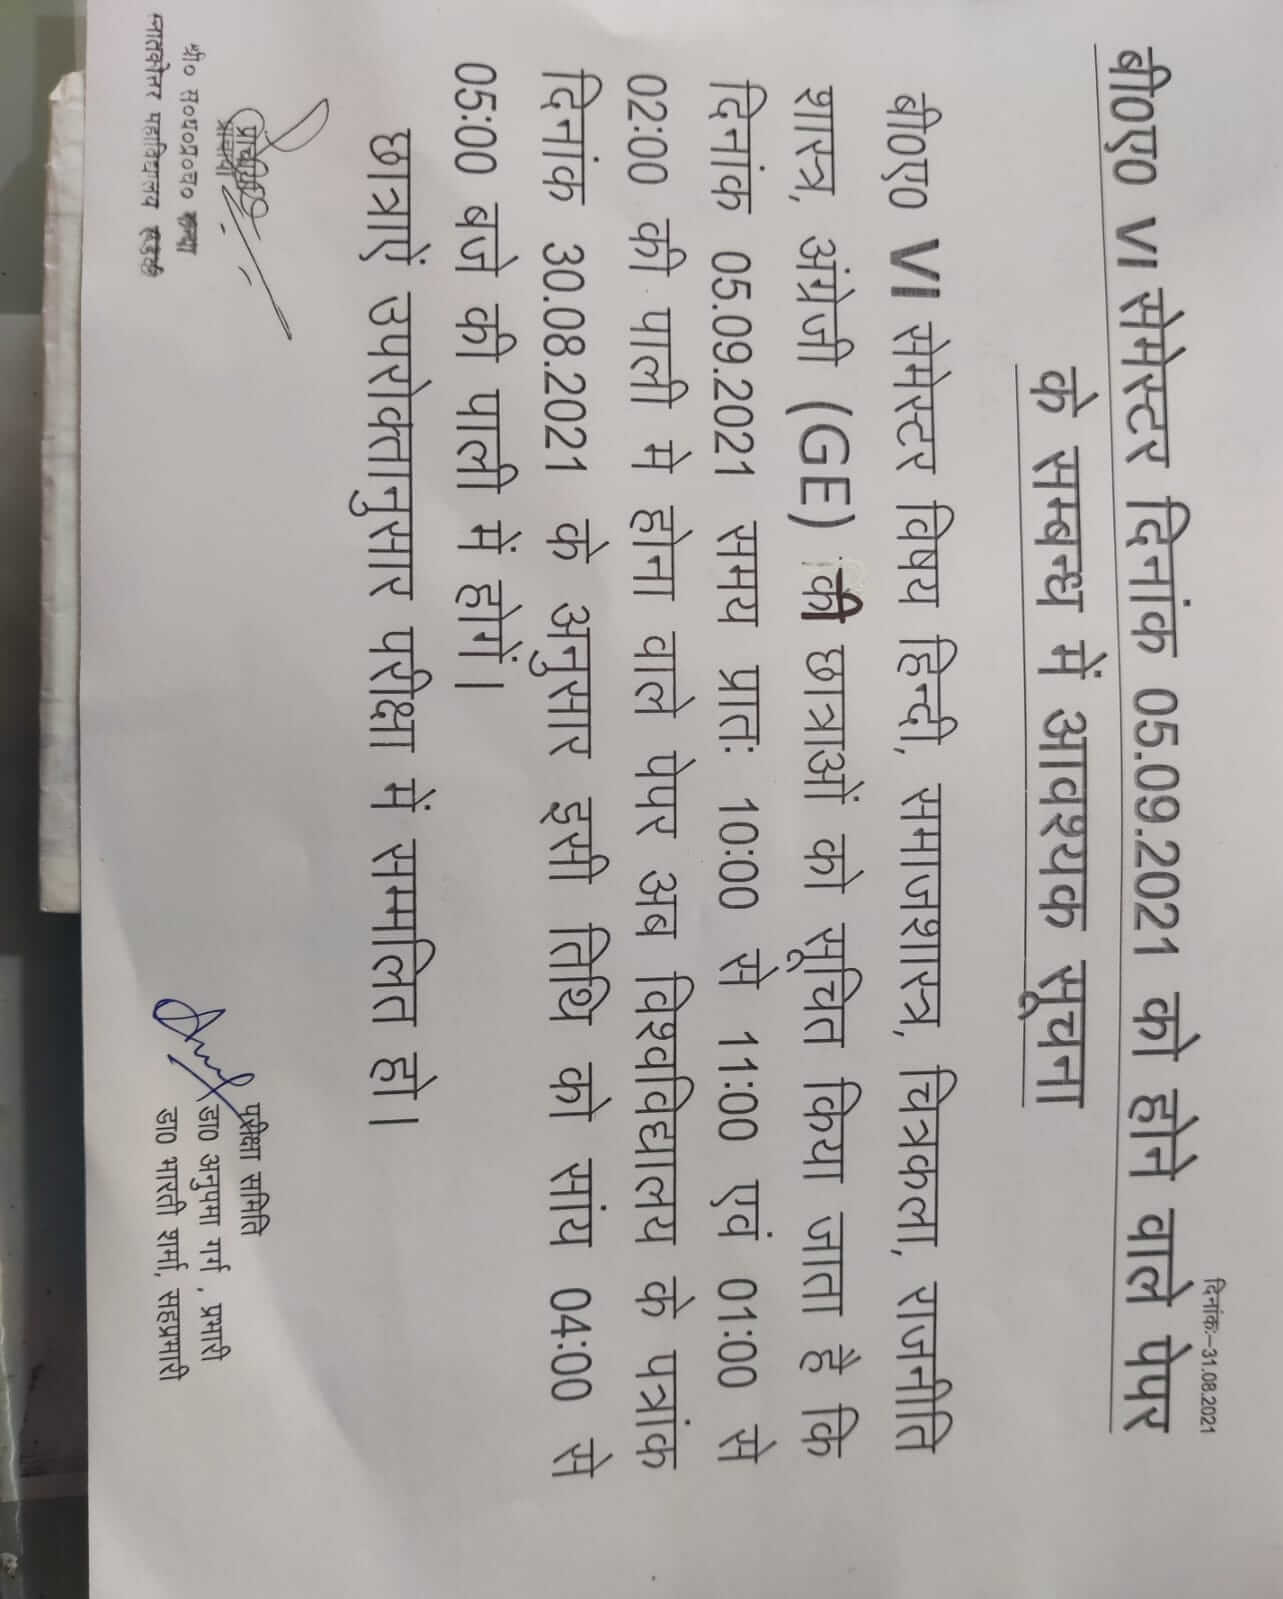 दिनांकः–31.08.2021
बी0ए0 VI सेमेस्टर दिनांक 05.09.2021 को होने वाले पेपर
के सम्बन्ध में आवश्यक सूचना
बी0ए0 VI सेमेस्टर विषय हिन्दी, समाजशास्त्र, चित्रकला, राजनीति
शास्त्र, अंग्रेजी (GE) की छात्राओं को सूचित किया जाता है कि
दिनांक 05.09.2021 समय प्रातः 10:00 से 11:00 एवं 01:00 से
02:00 की पाली मे होना वाले पेपर अब विश्वविद्यालय के पत्रांक
दिनांक 30.08.2021 के अनुसार इसी तिथि को सांय 04:00 से
05:00 बजे की पाली में होगें।
छात्राऐं उपरोक्तानुसार परीक्षा में सम्मलित हो।
प्राचार्या
प्राचार्या
श्री० स०ध०प्र०च० कन्या
स्नातकोत्तर महाविद्यालय रूड़की
परीक्षा समिति
डा0 अनुपमा गर्ग , प्रभारी
डा0 भारती शर्मा, सहप्रभारी